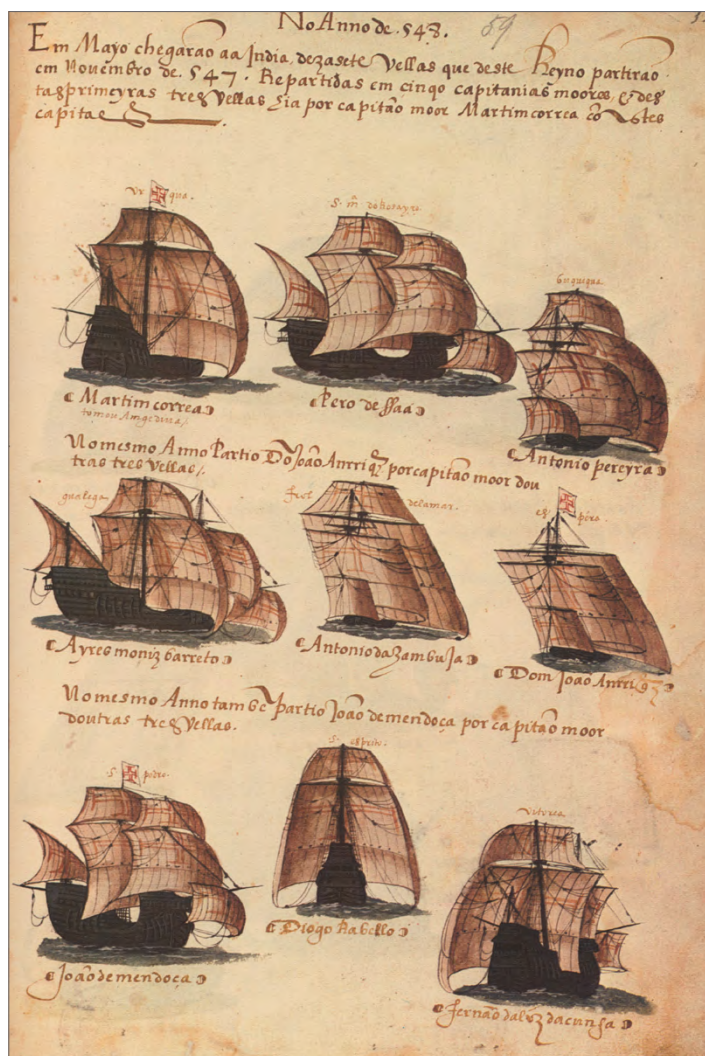 No Anno de .548.
59
Em Mayo chegarão aa India, dezasete vellas que deste Reyno partirão
em Nouembro de .547. Repartidas em cinqo capitanias moores, & des
tas primeyras tres vellas hia por capitão moor Martim correa cõ estes
capitaẽs
ur qua.
S. m. do Rosayro
burquiqua
Martim correa
tomou Amgediua
Pero de ssaa
Antonio pereyra
No mesmo Anno Partio Dõ João Anrriqz por capitão moor dou
tras tres vellas
gualega
frol delamar.
es péro.
Ayres moniz barreto
Antonio da Zambuja
Dom João Anrriqz
No mesmo Anno tambẽ partio João de mendoça por capitão moor
doutras tres vellas.
S. pedro.
S. esprito
vitorea
João de mendoça
Diogo Rabello
fernão dalvz dacunha